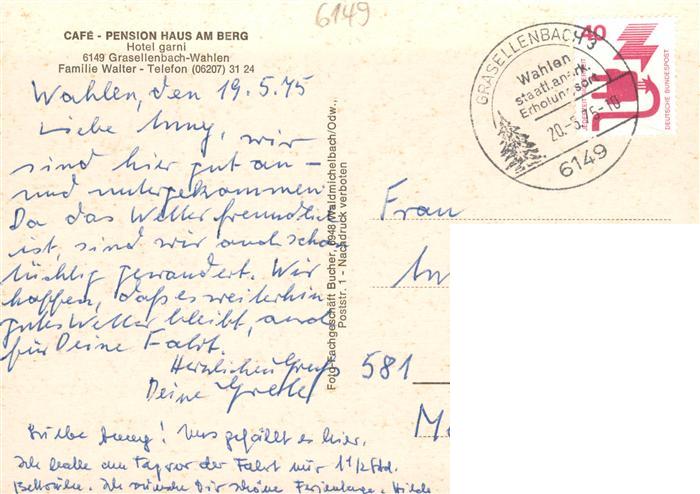 6149
CAFÉ - PENSION HAUS AM BERG
Hotel garni
6149 Grasellenbach-Wahlen
Familie Walter - Telefon (06207) 31 24
Wahlen, den 19.5.75
Liebe Anny, wir
sind hier gut an-
und untergekommen.
Da das Wetter freundlich
ist, sind wir auch schon
tüchtig gewandert. Wir
hoffen, daß es weiterhin
gutes Wetter bleibt, auch
für Deine Fahrt.
Herzlichen Gruß
Deine Gretel
Liebe Anny! Uns gefällt es hier.
Ich hatte am Tag vor der Fahrt nur 1 1/2 Std.
Bettruhe. Ich wünsche Dir schöne Ferientage. Hilde
Foto-Fachgeschäft Bucher, 6948 Waldmichelbach/Odw.,
Poststr. 1 - Nachdruck verboten
GRASELLENBACH 3
Wahlen
staatl. anerk.
Erholungsort
20.-5.75-10
6149
40
DEUTSCHE BUNDESPOST
Frau
581